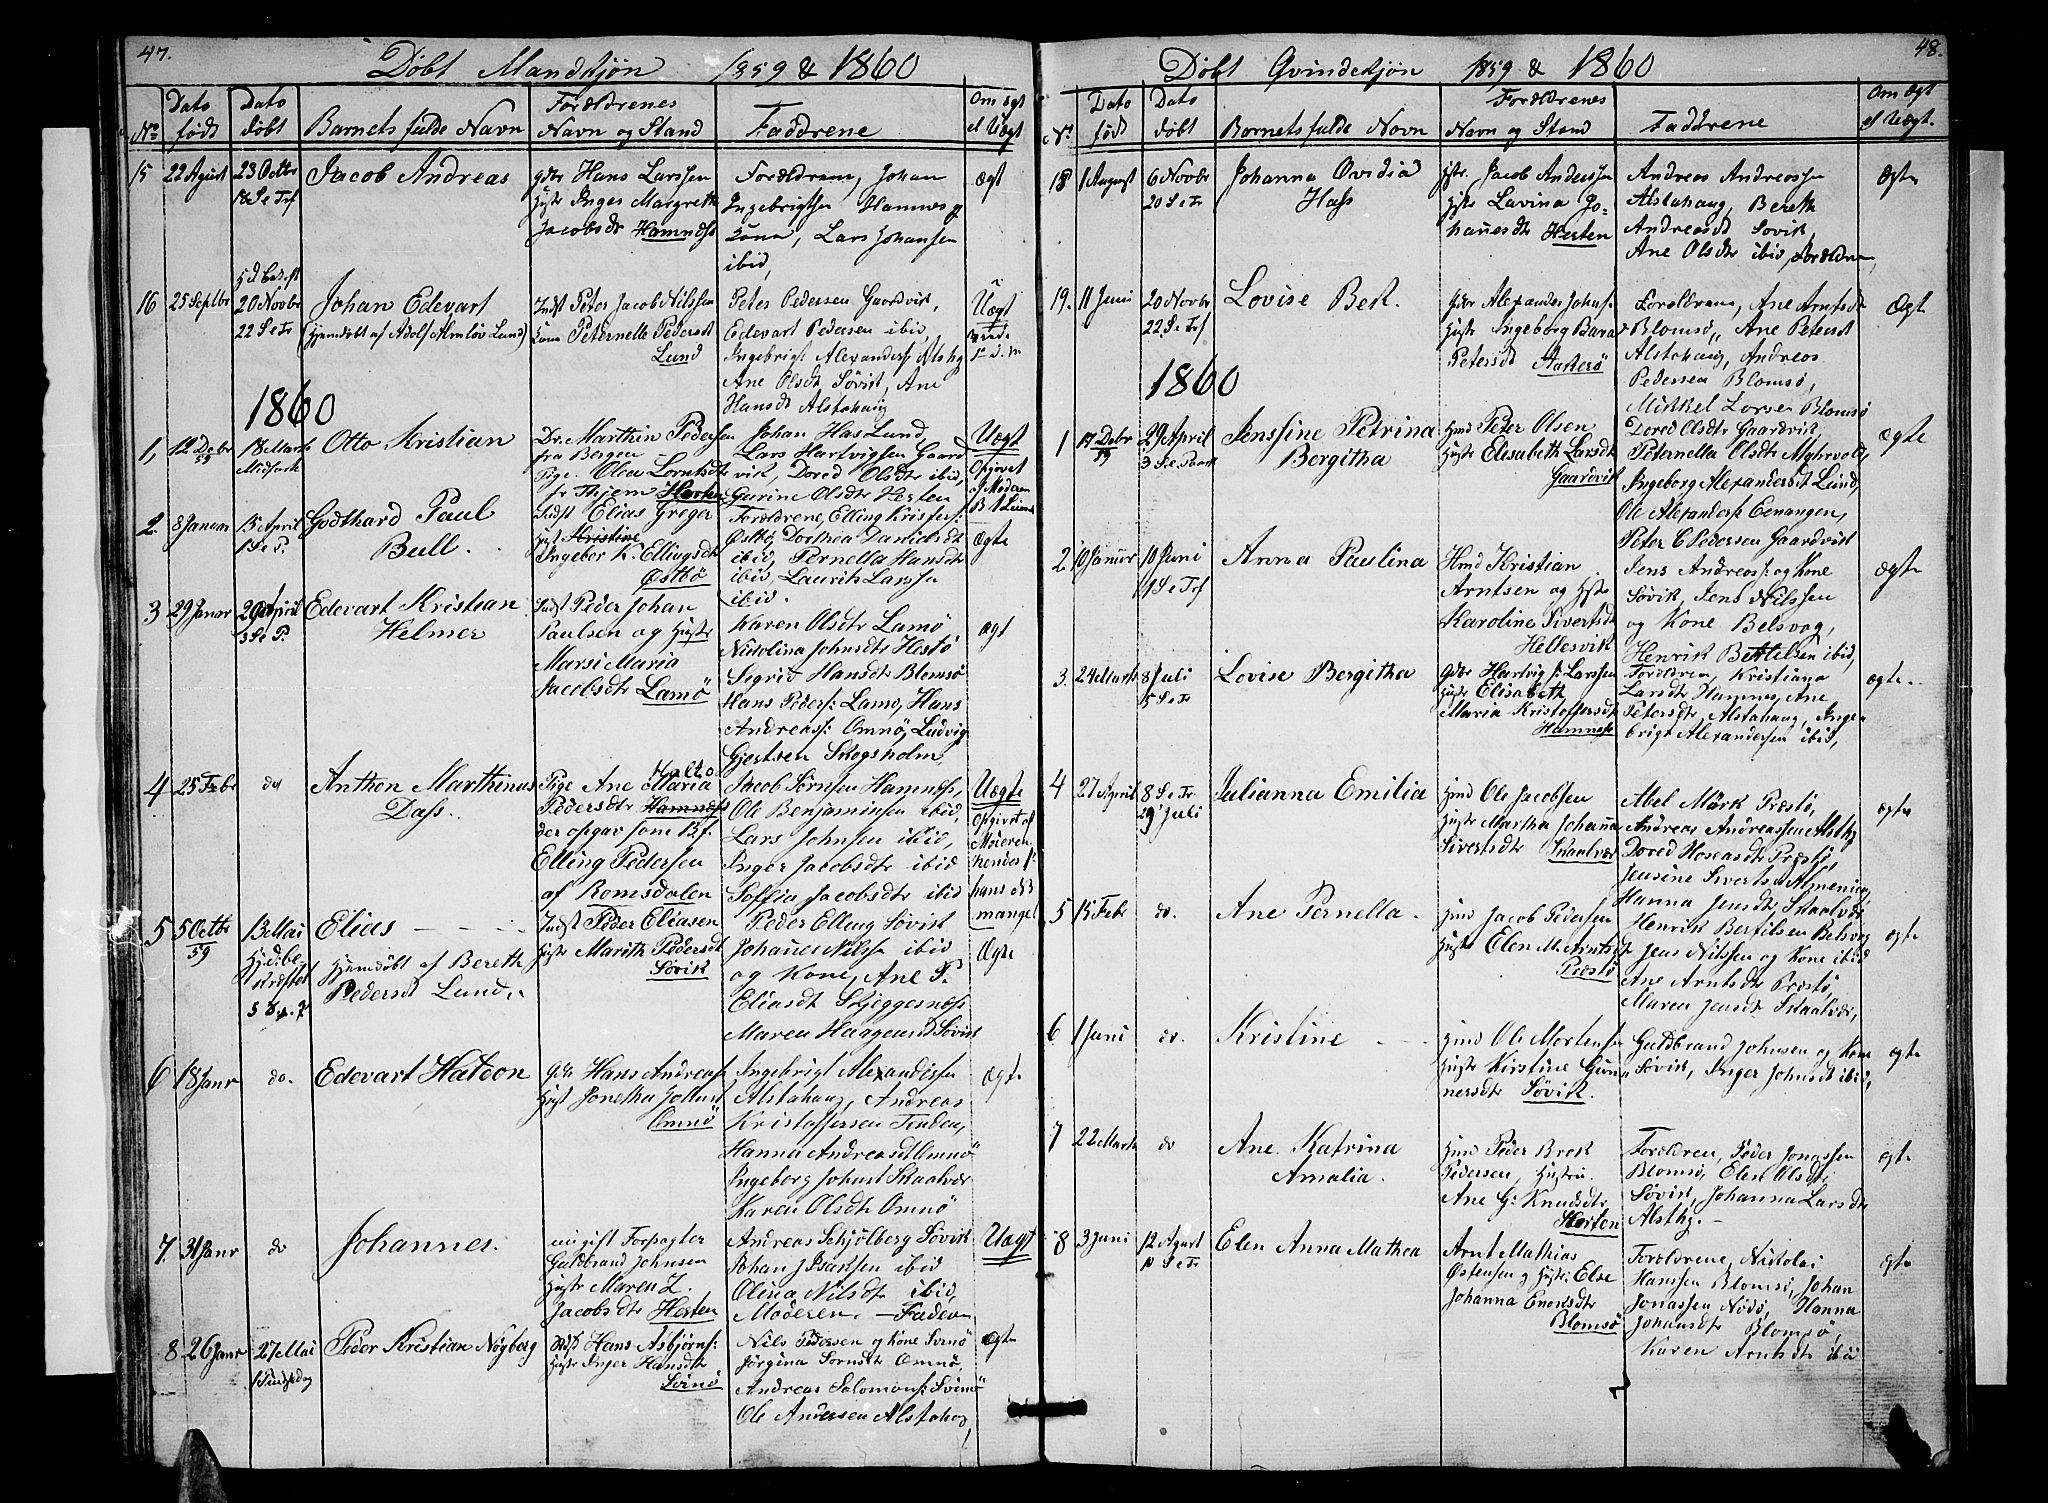 47.
Døbt Mandkjøn 1859 & 1860
No
Dato født
Dato døbt
Barnets fulde Navn
Forældrenes Navn og Stand
Faddrene
Om ægt el Uægt
15 22 August 23 Octbr 18 S e Trf
Jacob Andreas
Hans Larssen
Inger Margreth
Jacobsdtr Hamnæss
Forældrene, Johan
Ingebrigtsen Hamnes og
Kone, Lars Johansen
ibid,
Ægt
16 25 Septbr 20 Novbr 22 S e Tr
Johan Edevart
(Hjemdøbt af Adolf Almløv Lund)
Indst Peter Jacob Nilssen
Kone Peternelle Pedersdt
Lund
Peter Pedersen Gaardvik,
Edevart Pedersen ibid,
Ingebrigt Alexanders: Alsthg
Ane Olsdt Søvik, Ane
Hansdt Alstahaug
Uægt
1860
1, 12 Debr 59 18 Marts Midfaste
Otto Kristian
Dr. Marthin Pedersen
fra Bergen
Pige Olea Lorntsdt
fr Thjem Herten
Johan Has Lund,
Lars Hartvigsen Gaard
vik, Dored Olsdtr ibid,
Gurine Olsdtr Hesten
Uægt
Opgivet
af Moderen
2. 8 Januar 15 April 1 S e P.
Godthard Paul
Bull.
Indst Elias Greger
Hust Kristine
Ingebor K. Ellingsdt
Østbø
Forældrene, Elling Kristofs:
Østbø, Dorthea Danielsdt
ibid, Pernella Hansdt
ibid, Laurits Larssen
ibid.
Ægte
3 29 Januar 29 April 3 S e P.
Edevart Kristian
Helmer
Indst Peder Johan
Paulsen og Hustr
Marsi Maria
Jacobsdtr Lamø
Karen Olsdtr Lamø
Nicolina Johnsdtr Hestø
Sigrid Hansdtr Blomsø
Hans Peders: Lamø, Hans
Andreass: Omnø, Ludvig
Gjertsen Skogsholm
Ægt
4 25 Febr do
Anthon Marthinus
Dass.
Pige Ane Maria
Pedersdtr Hamnæss
der opgav som Bf.
Elling Pedersen
af Romsdalen
Jacob Sørnsen Hamnæss,
Ole Benjaminsen ibid,
Lars Johnsen ibid,
Inger Jacobsdtr ibid
Soffia Jacobsdtr ibid
Uægte
Opgivet af
Moderen
hendes 1:
hans
5 5 Octbr 59 13 Mai
Elias
Hjemdøbt af Bereth
Pedersdt Lund.
Indst Peder Eliasen
Hustr Marith Pedersdt
Søvik
Peder Elling Søvik
Johannes Nilssen ibid
og Kone, Ane P.
Eliasdt Skjeggesnæss
Maren Haagensdt Søvik
Ægte
6 18 Janr do.
Edevart Hatdon
Gdbr Hans Andreass
Hust Jonetha Johnsd
Omnø
Ingebrigt Alexandersen
Alstahaug, Andreas
Kristoffersen Tinden,
Hanna Andreasdt Omnø
Ingeborg Johnsd Skaalvær
Karen Olsdtr Omnø
Ægte
7. 31 Janr do
Johannes.
ungift Forpagter
Guldbrand Johnsen
Hustr Maren L.
Jacobsdtr Hesten
Andreas Schjølberg Søvik
Johan J Isaksen ibid
Olina Nilsdtr ibid,
Moderen. – Faderen
Uægt
8 26 Janr 27 Mai 1 Pindsedag
Peder Kristian Nøgberg
Hans Asbjørns:
Hustr Inger Hansdtr
Svinø
Nils Pedersen og Kone Svinø
Jørgina Sørnsdtr Omnø,
Andreas Salomons: Svinø
Ole Andersen Alstahog
Ægte
48.
Døbt Qvindekjøn 1859 & 1860
No
Dato født
Dato døbt
Barnets fulde Navn
Forældrenes Navn og Stand
Faddrene
Om Ægt el Uægt.
18 1 August 6 Novbr 20 S e Tr
Johanna Ovidia
Hass
Jacob Anderssen
Hstr Lavina Jo-
hannesdtr Hesten
Andreas Andreassen
Alstahaug, Bereth
Andreasdt Søvik,
Ane Olsdtr ibid, Forældrene,
Ægte
19. 11 Juni 20 Novbr 22 S e Trf
Lovise Bek.
Alexander Johns:
Hustr Ingeborg Bara
Petersdt Aakerø
Forældrene, Ane Arntsdt
Blomsø, Ane Petersdt
Alstahaug, Andreas
Pedersen Blomsø,
Mikkel Larsen Blomsø
Ægte
1860
1 17 Debr 59 29 April 3 S e Paask
Jenssine Petrina
Bergitha
Hmd Peter Olsen
Hustr Elisabeth Larsdt
Gaardvik
Dored Olsdtr Gaardvik,
Peternella Olsdtr Myhrvold
Ingeborg Alexandersdt Lund,
Ole Alexanders: Eenangen,
Peter C Pedersen Gaardvik
Ægte
2 10 Januar 10 Juni 1 S e Trf
Anna Paulina
Hmd Kristian
Arntsen og Hstr
Karoline Sivertsdt
Hellesvik
Jens Andreass: og Kone
Søvik, Jens Nilssen
og Kone Belsvog,
Henrik Bertelsen ibid,
Ægte
3. 24 Marts 8 Juli 5 S e Tr
Lovise Bergitha
Gdbr Hartvig s: Larssen
Hustr Elisabeth
Maria Kristoffersdt
Hamnæss
Forældrene, Kristiana
Larsdtr Hamnes, Ane
Petersdtr Alstahaug, Inge-
brigt Alexandersen ibid,
Ægte
4 27 April 8 S e Tr 29 Juli
Julianna Emilia
Hmd Ole Jacobsen
Hustr Martha Johanna
Sivertsdtr Skaalvær
Abel Mörk Præstø,
Andreas Andreassen Alsthg
Dored Hoseasdtr Præstø,
Jensine Sivertsd Almening
Hanna Jensdt Skaalvær
Ægte
5 15 Febr do.
Ane Pernella.
Hmd Jacob Pedersen
Hustr Elen M. Arntsdt
Præstø
Henrik Bertilsen Belsvog
Jens Nilssen og Kone ibid
Ane Arntsdt Præstø,
Maren Jensdt Skaalvær,
Ægte
6 1 Juni do.
Kristine
Hmd Ole Mortensen
Hustr Kirstine Gun-
nersdtr Søvik.
Guldbrand Johnsen og Kone
Søvik, Inger Johnsdt ibid,
Ægte
7 22 Marts do
Ane Katrina
Amalia.
Hmd Peder Brok
Pedersen, Hustru
Ane G: Knudsdtr
Herton
Forældrene, Peder Jonassen
Blomsø, Elen Olsdt
Søvik, Johanna Larsdtr
Alsthg.
Ægte
8 3 Juni 12 Agust 10 S e Tr
Elen Anna Mathea
Arnt Mathias
Østensen og Hustr: Else
Johanna Enoksdtr
Blomsø
Forældrene, Nikolai
Hanssen Blomsø, Johan
Jonassen Nødø, Hanna
Johansdtr Blomsø,
Karen Arntsdtr ibid
Ægte